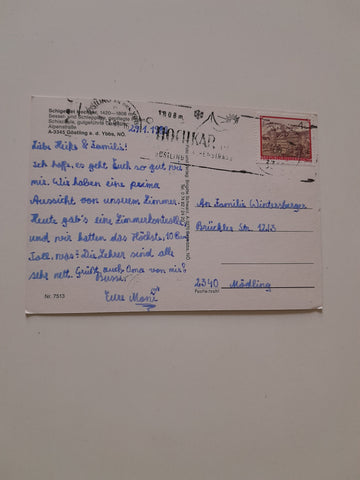 Schigebiet Hochkar, 1420–1808 m
Sessel- und Schlepplifte, gepflegte
Schischule, gutgeführte
Alpenstraße
A-3345 Göstling a. d. Ybbs, NÖ.
1808m
HOCHKAR
GÖSTLING
Liebe Heiks & Familie!
Ich hoffe, es geht Euch so gut wie
mir. Wir haben eine prima
Aussicht von unserem Zimmer.
Heute gab's eine Zimmerkontrolle
und wir hatten das Höchste, 10 Punkte
Toll, was? Die Lehrer sind alle
sehr nett. Grüßt auch Oma von mir!
Bussi
Eure Moni
Nr. 7513
An Familie Wintersberger
Brückler Str. 12/3
2340 Mödling
Postleitzahl